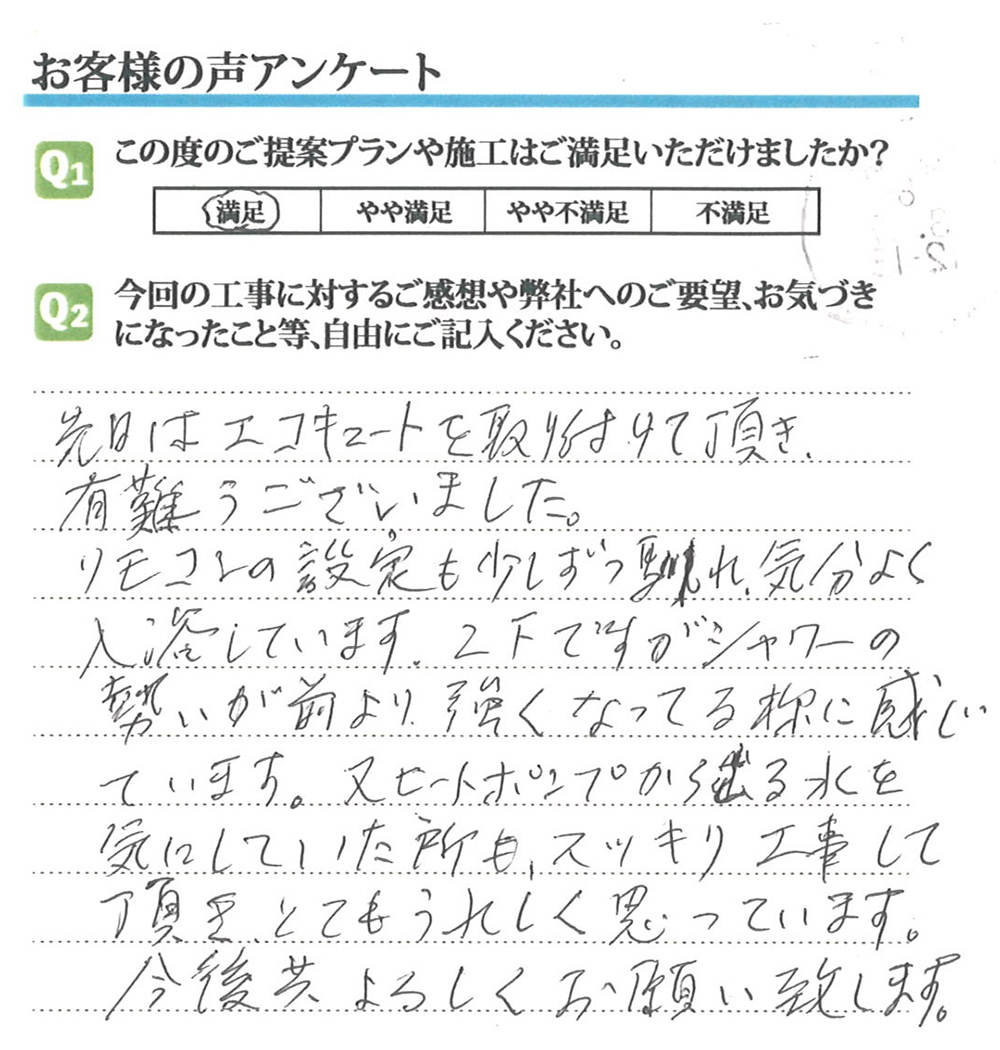 お客様の声アンケート
Q1 この度のご提案プランや施工はご満足いただけましたか?
満足 やや満足 やや不満足 不満足
Q2 今回の工事に対するご感想や弊社へのご要望、お気づき
になったこと等、自由にご記入ください。
先日はエコキュートを取り付けて頂き、
有難うございました。
リモコンの設定も少しずつ馴れ、気分よく
入浴しています。2Fですがシャワーの
勢いが前より強くなってる様に感じ
ています。又ヒートポンプから出る水を
気にしていた所も、スッキリ工事して
頂き、とてもうれしく思っています。
今後共よろしくお願い致します。